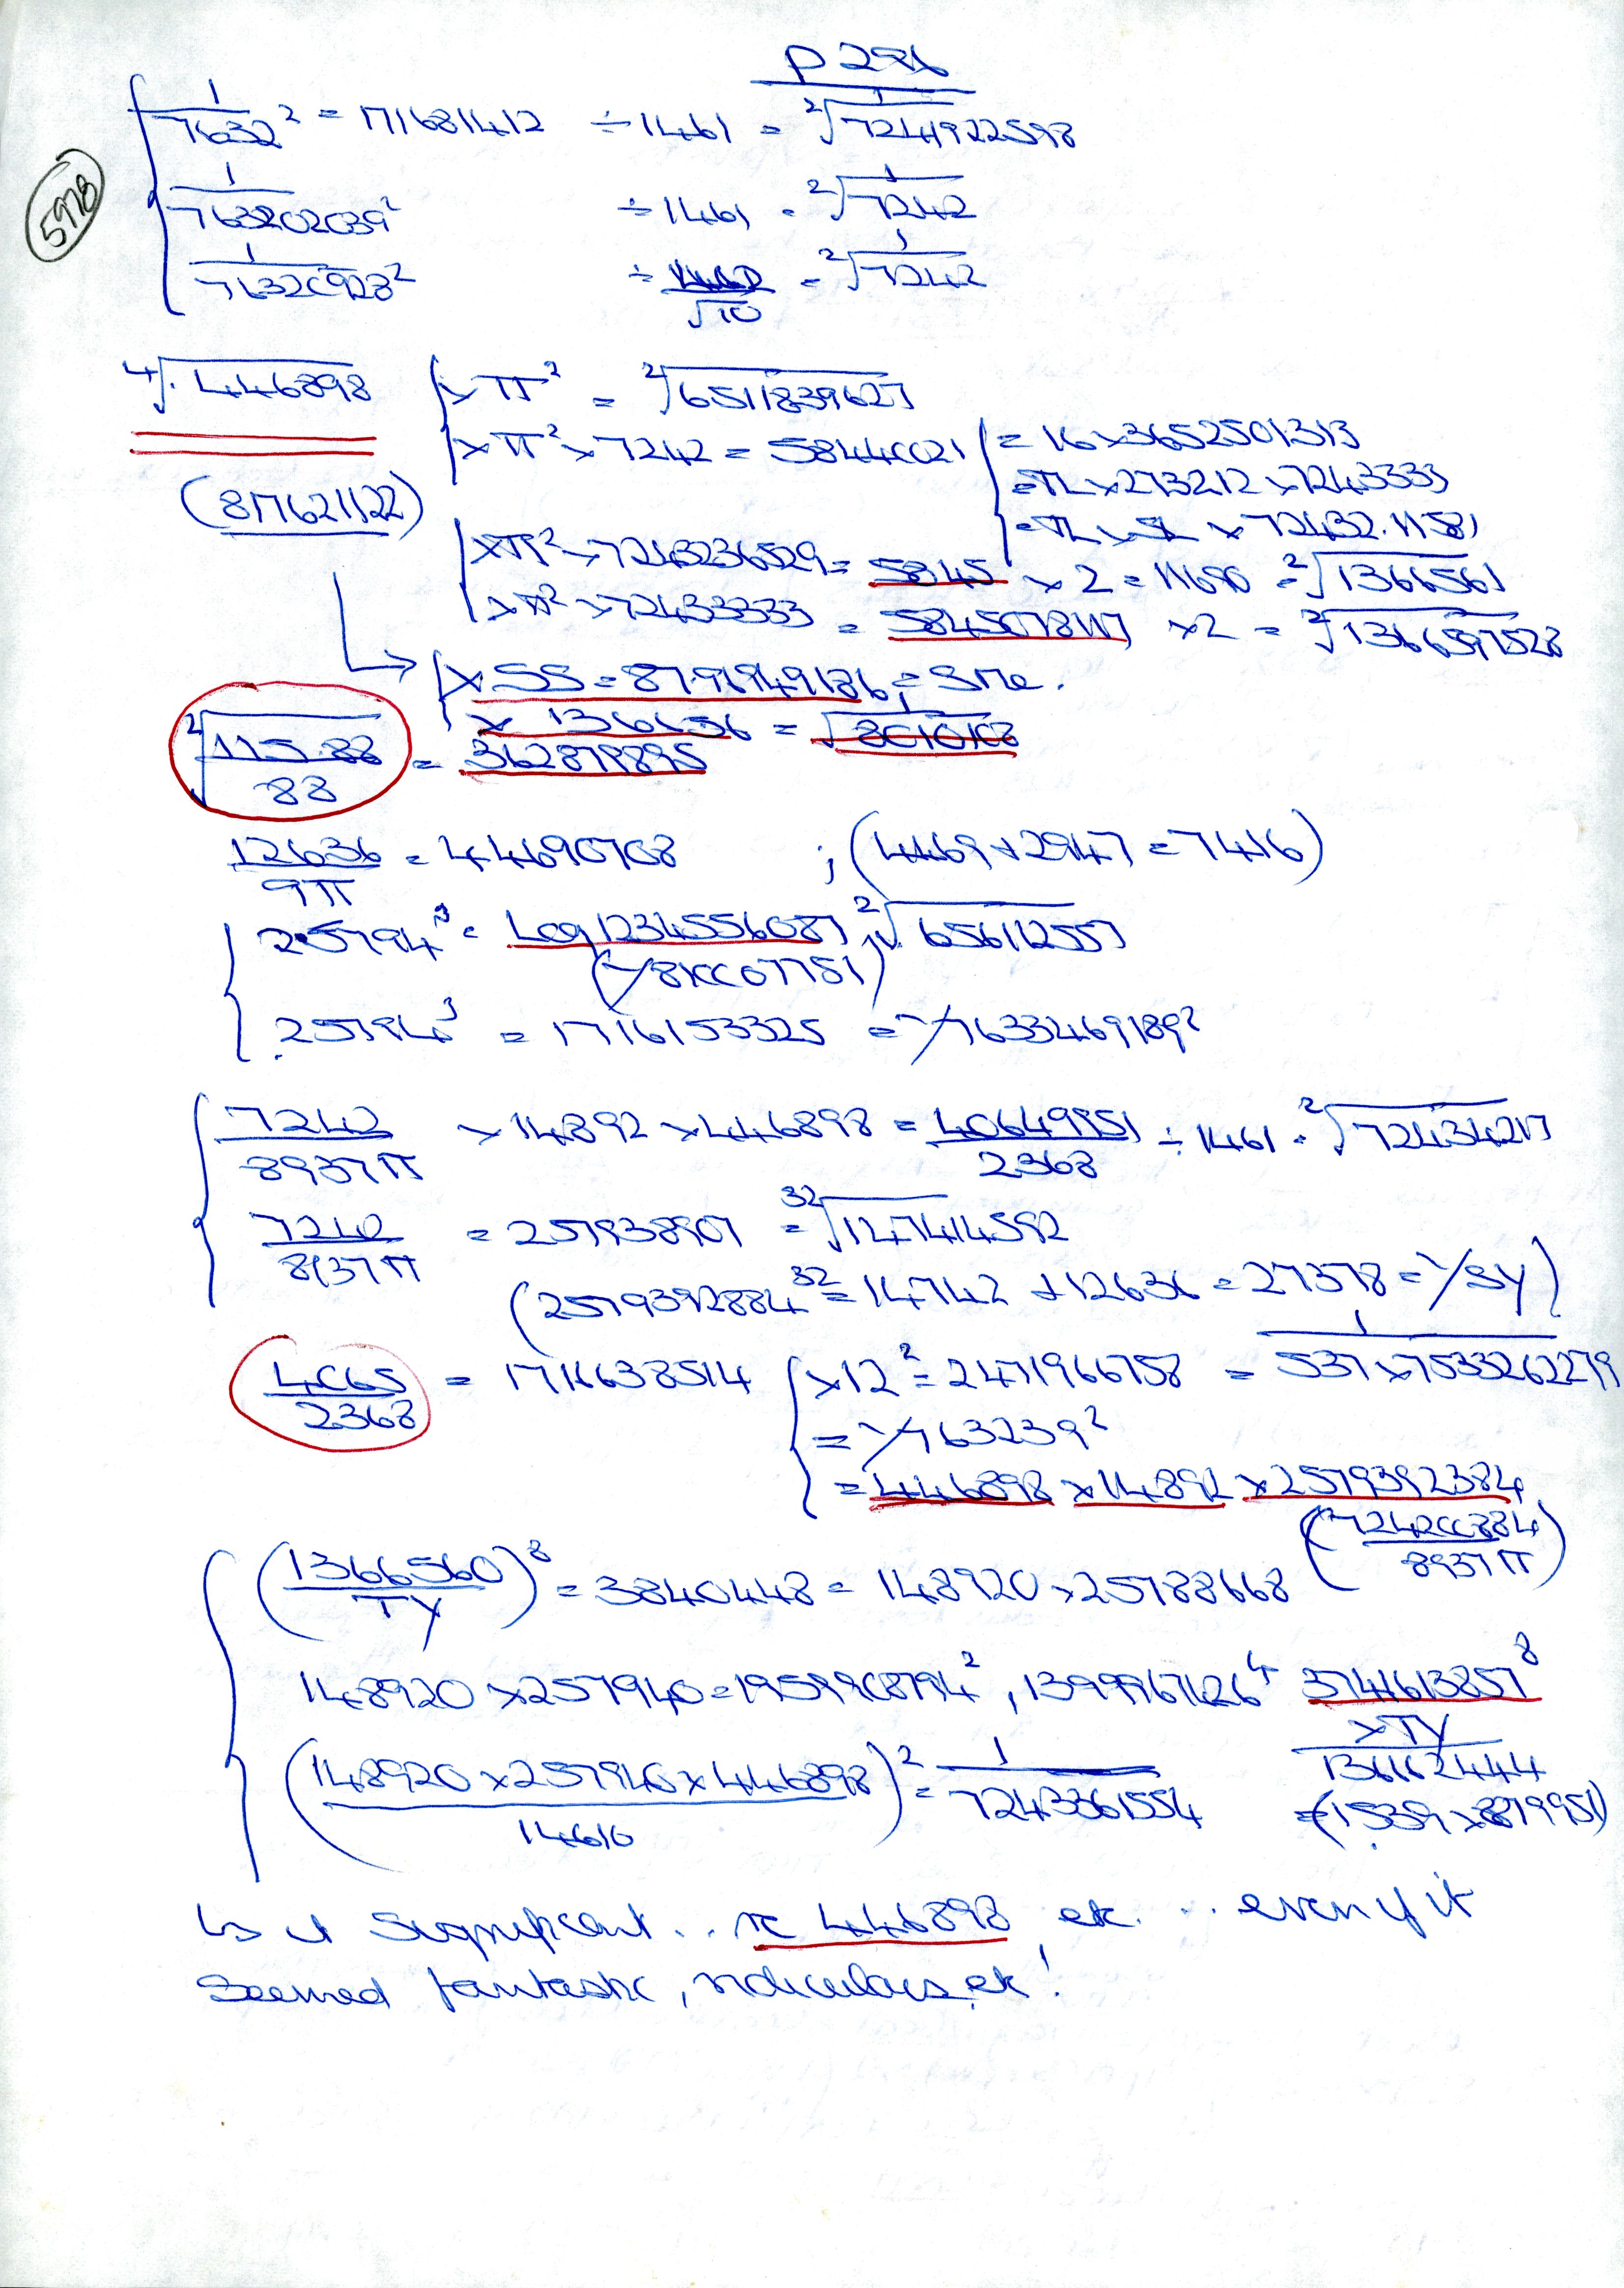 p 286
5978
1/7632² = 171681412 ÷ 1461 = ²√1/7241922598
1/763202039² ÷ 1461 = ²√1/7242
1/76320928² ÷ /√10 = ²√1/7242
⁴√.446898 { × π² = ²√6511839627
× π² × 7242 = 58440021 { = 16 × 3652501313
= TL × 273212 × 7243333
= TL × SL × 72432.11581
(817621122)
{ × π² × 7243236529 = 5845 × 2 = 11690 = ²√1366561
× π² × 72433333 = 5845078117 × 2 = ²√1366597528
→ { × SS = 8796949186 = SMe.
× 136656 = √1/8010108
²√115.88/88 = 362879895
12636/9π = 44690708 ; (4469 + 2947 = 7416)
{ 2.5794³ = Log 1234556087, ²√656112557
(1/810007751)
.25794³ = 1716153325 = 1/7633469189²
{ 7242/8937π × 14892 × 446898 = 40649951/2368 ÷ 1461 = ²√72434217
7242/8937π = 257938907 = ³²√147414592
(2579392884³² = 14742 + 12636 = 27378 = 1/SY)
4065/2368 = 1716638514 { × 12² = 2471966758 = 1/537 × 7533262279
= 1/763239²
= 446898 × 14892 × 2579392384
(724200884/8937π)
{ (1366560/TY)⁸ = 3840448 = 148920 × 25788668
148920 × 257940 = 1959908794², 1399967126⁴ 3741613857⁸
× TY/136162444
(148920 × 257940 × 446898/14610)² = 1/7243361554 = (1539 × 8879951)
Is it significant .. re 446898 etc. .. even if it
seemed fantastic, ridiculous, etc!